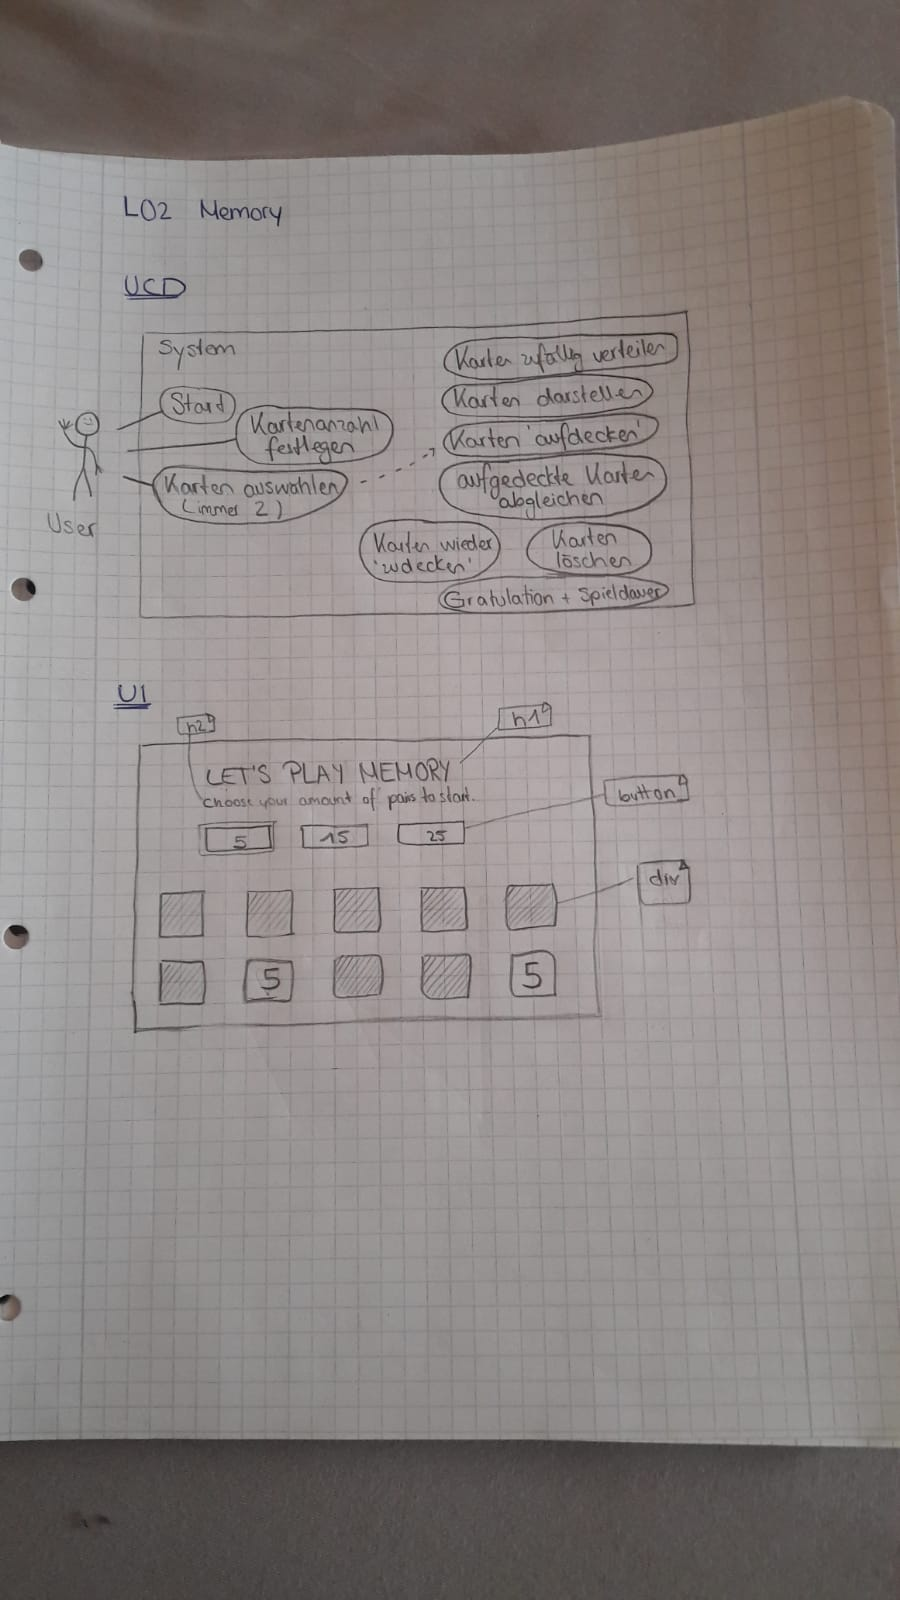 L02 Memory
UCD
System
Start
Kartenanzahl
festlegen
Karten auswählen
(immer 2)
User
Karten zufällig verteilen
Karten darstellen
Karten 'aufdecken'
aufgedeckte Karten
abgleichen
Karten wieder
'zudecken'
Karten
löschen
Gratulation + Spieldauer
UI
h2
h1
LET'S PLAY MEMORY
Choose your amount of pairs to start.
button
5 15 25
div
5 5